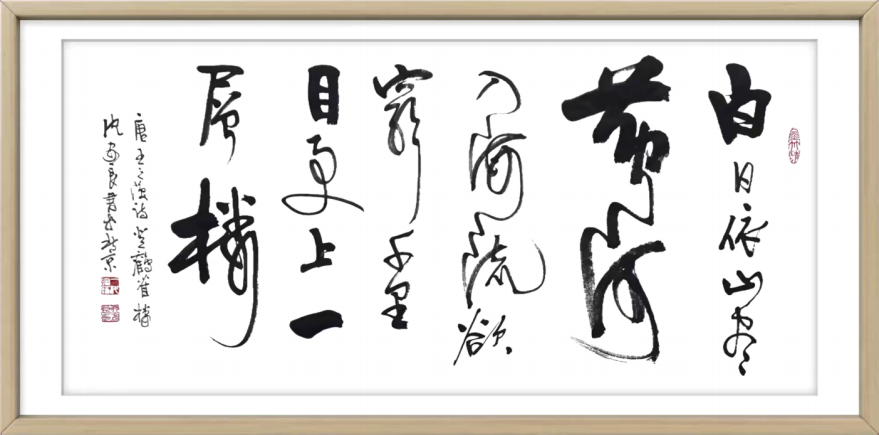 白日依山尽
黄河
入海流欲
穷千里
目更上一
层楼
唐王之涣诗登鹳雀楼
书于北京